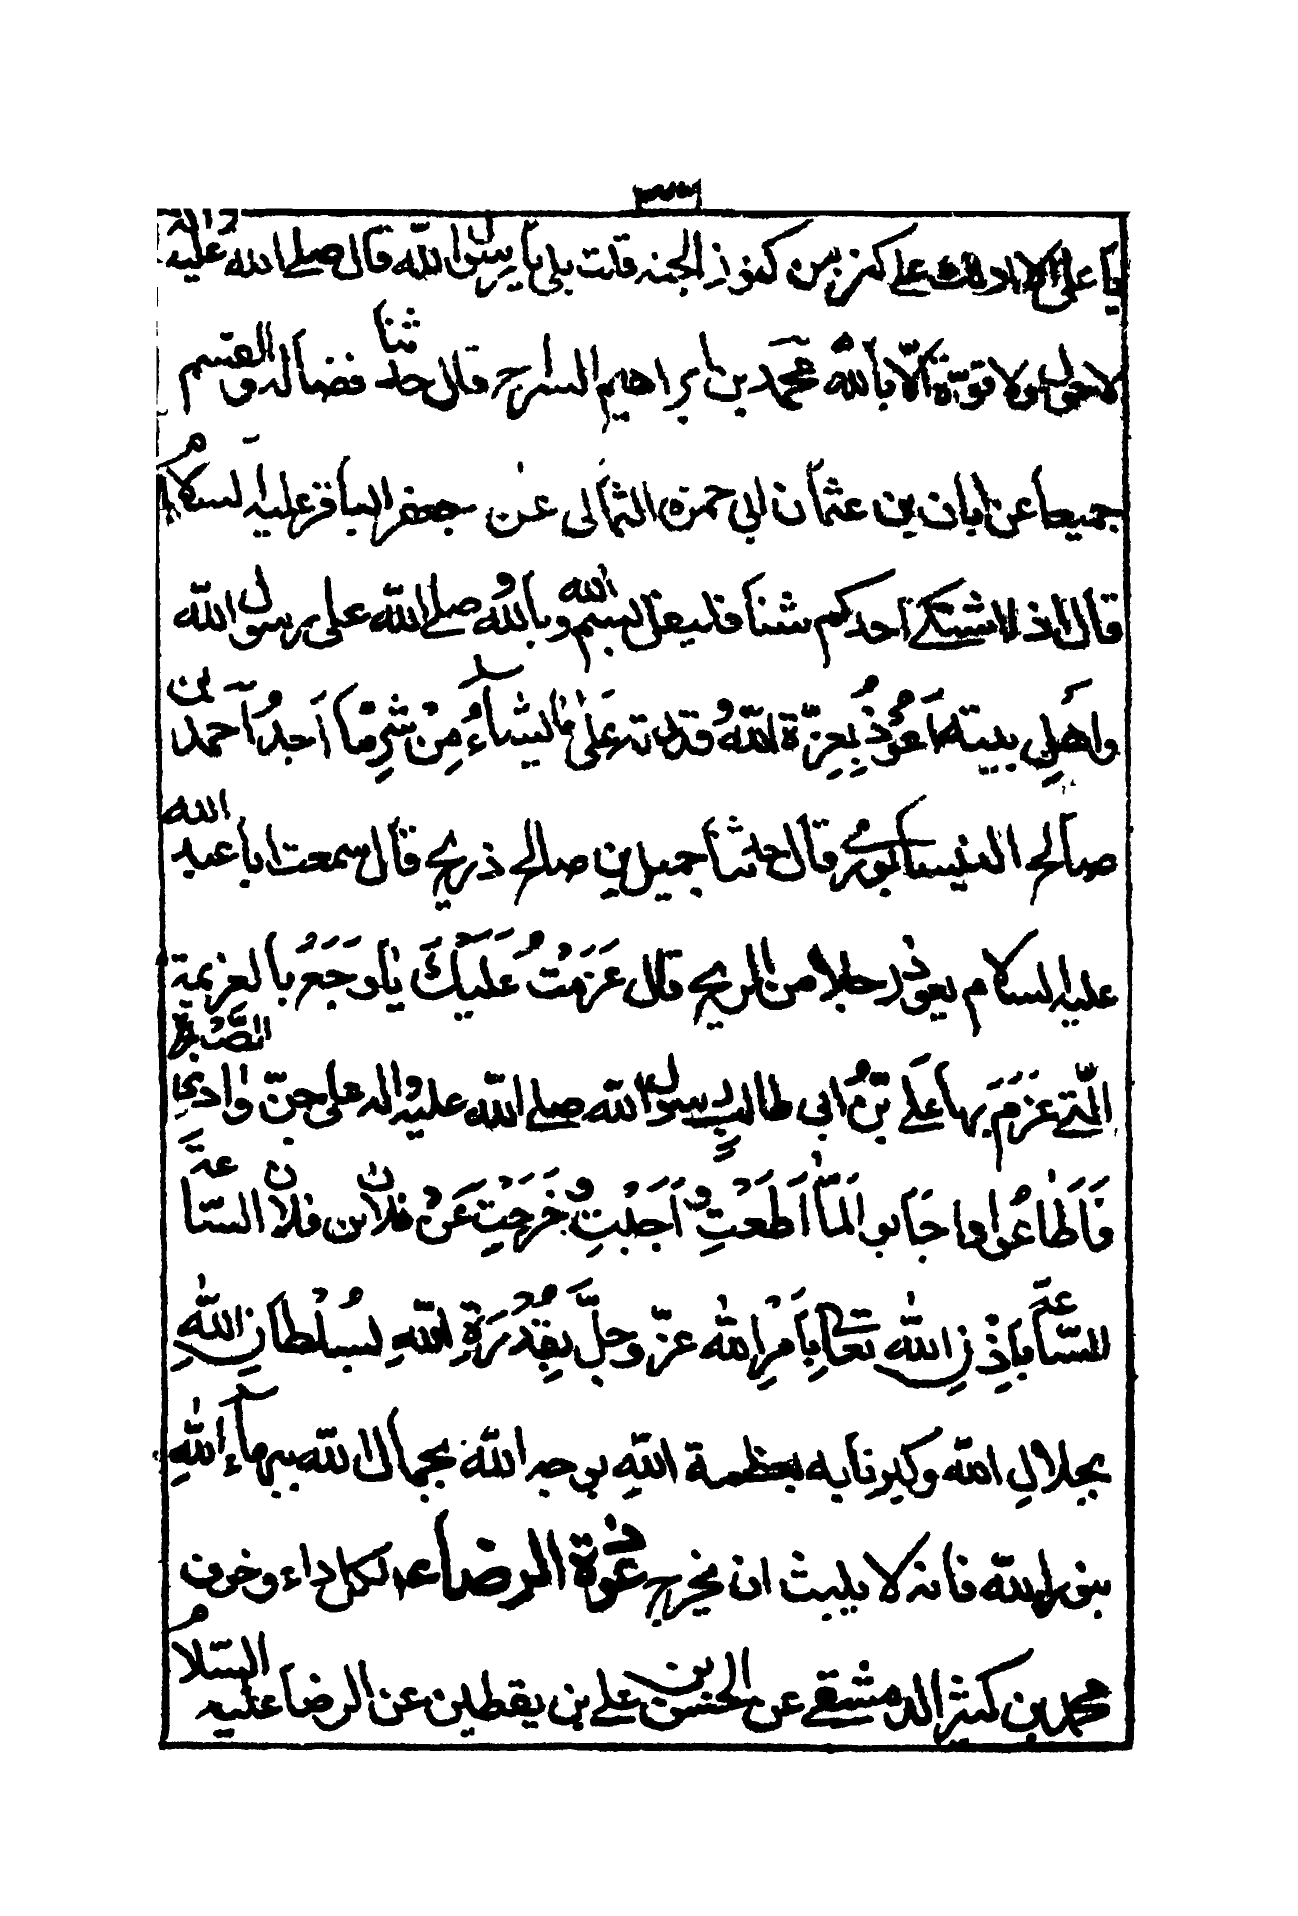 يا على الا ادلك على كنز من كنوز الجنه قلت بلى يا رسول الله قال صلے الله عليه واله
لا حول ولا قوة الا بالله محمد بن ابراهيم السراج قال حدثنا فضاله و القسم
جميعا عن ابان بن عثمان ابى حمزه الثمالى عن جعفر الباقر عليه السلام
قال اذا اشتكے احدكم شئا فليقل بسم الله وبالله و صلے الله على رسول الله
واهل بيته اَعُوذُ بعِزّة الله و قدرته عَلىٰ ما يشآءُ مِنْ شرِّ مٰا اَجدُ اَحمد بن
صالح النيسابورے قال حدثنا جميل بن صالح ذريح قال سمعت ابا عبد الله
عليه السلام يعوذ رجلا من الريح قال عَزَمْتُ عَلَيْكَ يٰا وَجَعُ بالعزيمة
الّتے عَزَمَ بها عَلَے بْنُ ابى طالبٍ رسول الله صلے الله عليه واله على جنّ وٰادىِ الصَّبْرة
فَاَطٰاعُوا واجَابوا لَمّٰا اَطَعْتِ و اَجَبْتِ و خَرَجْتِ عَنْ فلان بن فلان السّا عة
السّاعة باِذْنِ الله تعالے باَمْرِ الله عزّ وجلّ بقُدْرَةِ اللهِ بسُلْطانِ اللهِ
بجلالِ الله وكبريايه بعظمة اللهِ بوجه الله بجمال الله ببهآءِ اللهِ
بنور الله فانه لا يلبث ان يخرج عوذة الرضاء لكل داء وخوف
محمد بن كثير الدمشقے عن الحسن بن علے بن يقطين عن الرضا عليه السلام